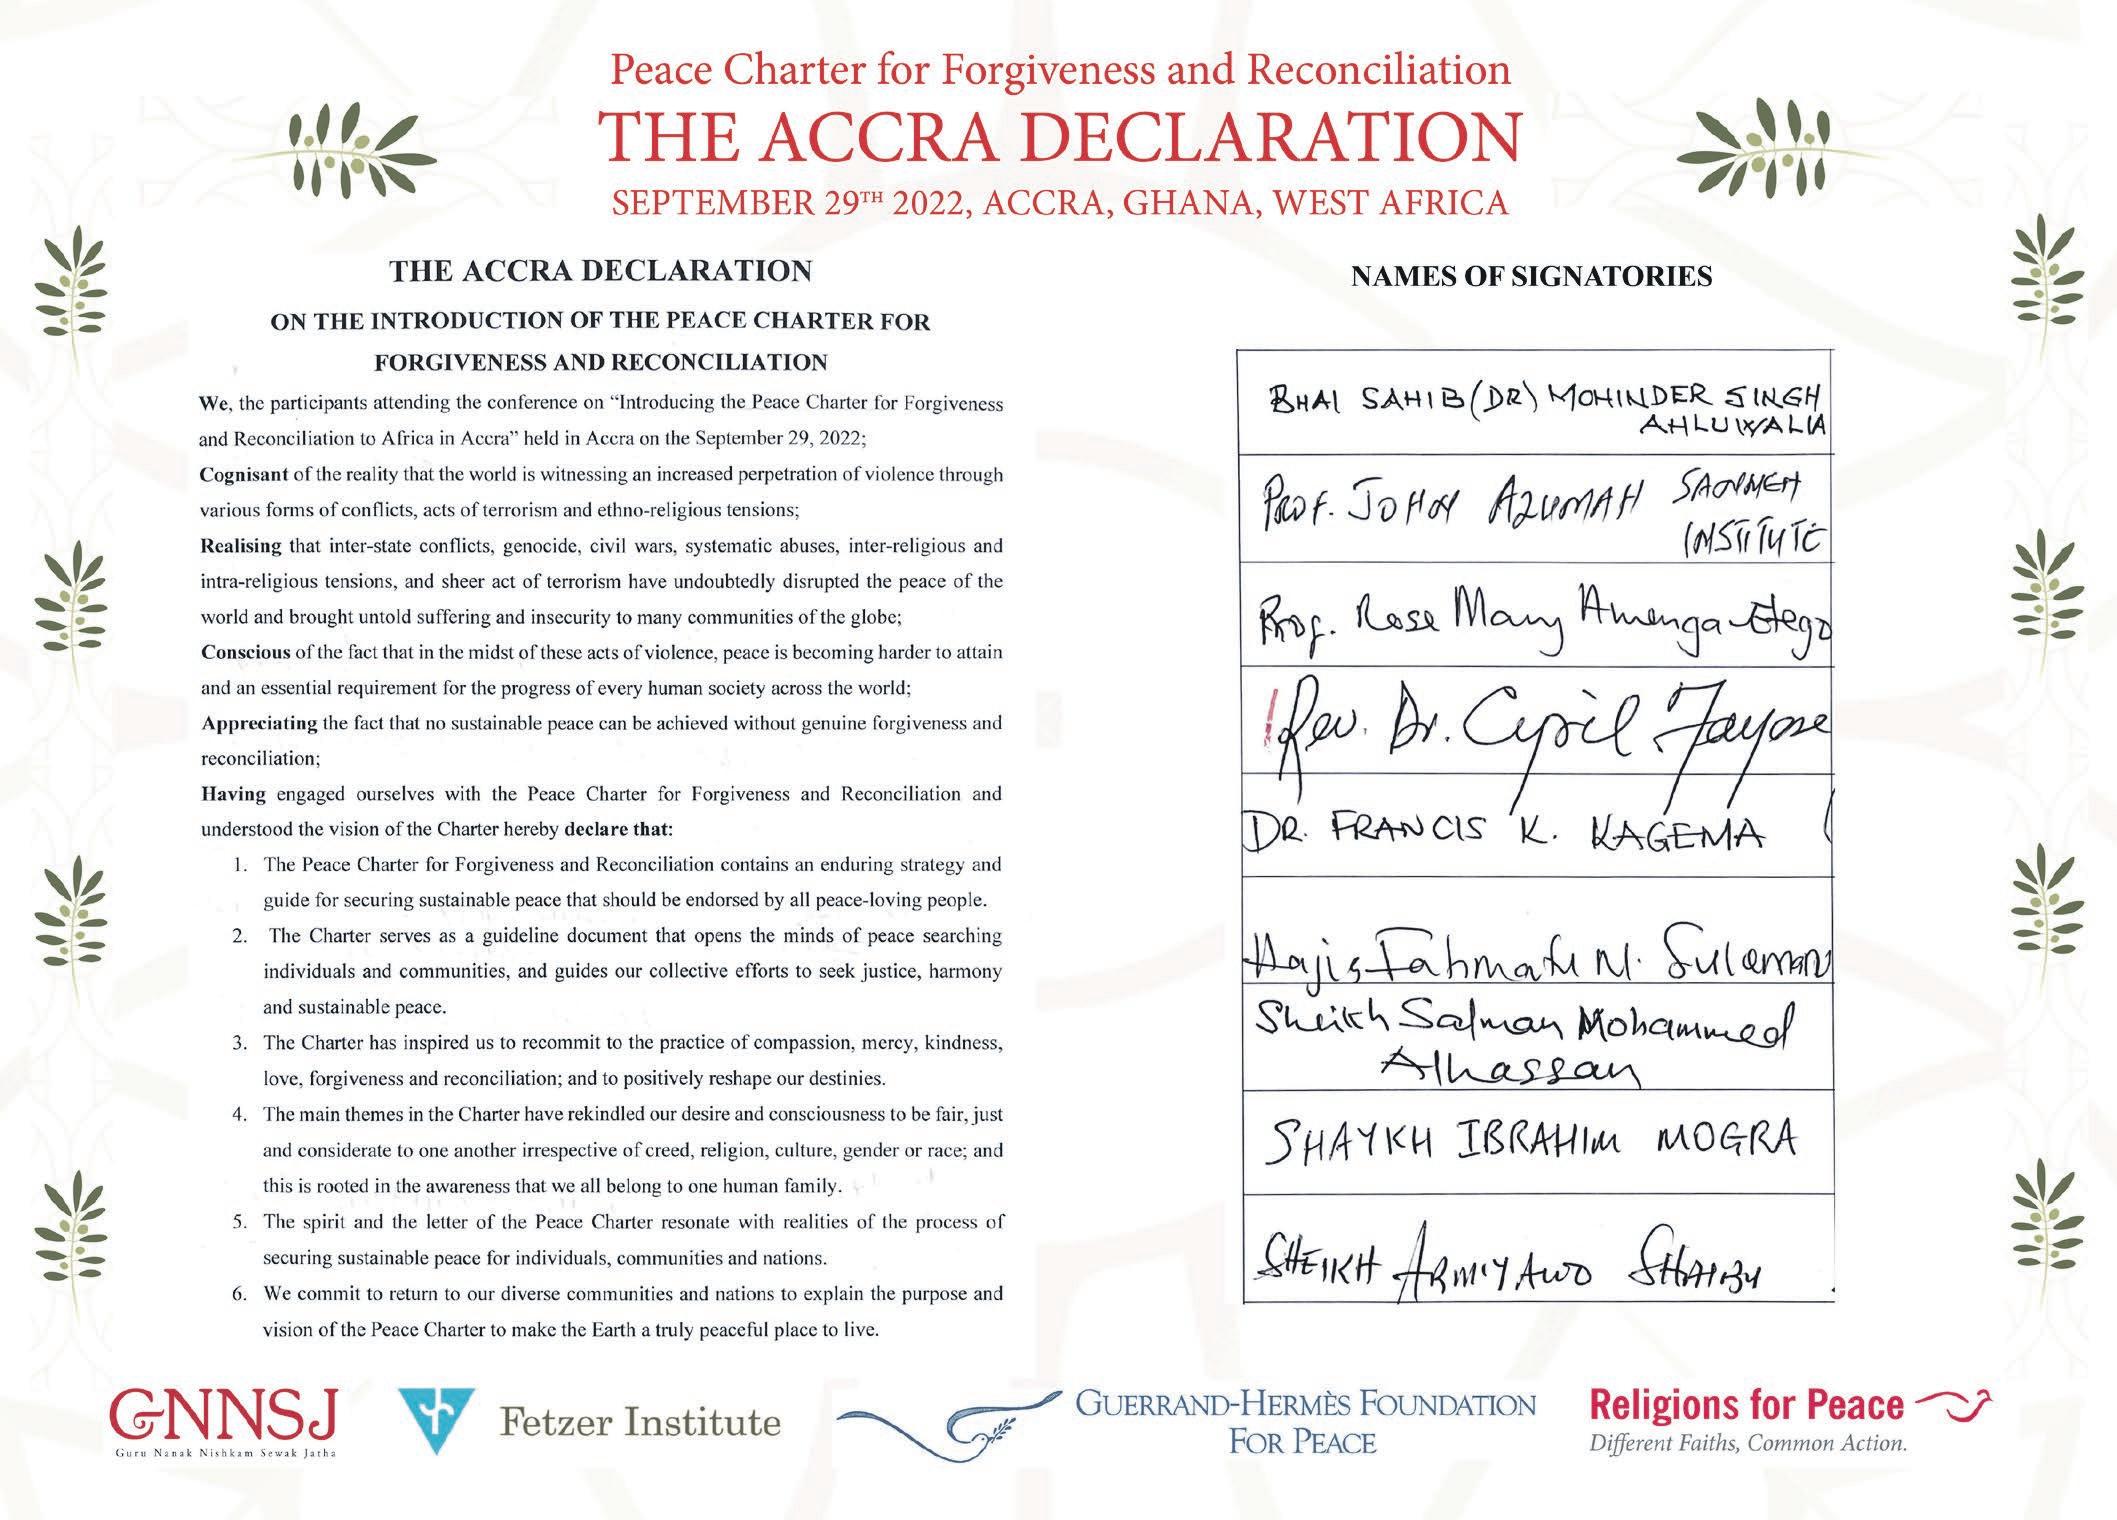 Peace Charter for Forgiveness and Reconciliation
THE ACCRA DECLARATION
SEPTEMBER 29TH 2022, ACCRA, GHANA, WEST AFRICA
THE ACCRA DECLARATION
ON THE INTRODUCTION OF THE PEACE CHARTER FOR
FORGIVENESS AND RECONCILIATION
We, the participants attending the conference on “Introducing the Peace Charter for Forgiveness
and Reconciliation to Africa in Accra” held in Accra on the September 29, 2022;
Cognisant of the reality that the world is witnessing an increased perpetration of violence through
various forms of conflicts, acts of terrorism and ethno-religious tensions;
Realising that inter-state conflicts, genocide, civil wars, systematic abuses, inter-religious and
intra-religious tensions, and sheer act of terrorism have undoubtedly disrupted the peace of the
world and brought untold suffering and insecurity to many communities of the globe;
Conscious of the fact that in the midst of these acts of violence, peace is becoming harder to attain
and an essential requirement for the progress of every human society across the world;
Appreciating the fact that no sustainable peace can be achieved without genuine forgiveness and
reconciliation;
Having engaged ourselves with the Peace Charter for Forgiveness and Reconciliation and
understood the vision of the Charter hereby declare that:
1. The Peace Charter for Forgiveness and Reconciliation contains an enduring strategy and
guide for securing sustainable peace that should be endorsed by all peace-loving people.
2. The Charter serves as a guideline document that opens the minds of peace searching
individuals and communities, and guides our collective efforts to seek justice, harmony
and sustainable peace.
3. The Charter has inspired us to recommit to the practice of compassion, mercy, kindness,
love, forgiveness and reconciliation; and to positively reshape our destinies.
4. The main themes in the Charter have rekindled our desire and consciousness to be fair, just
and considerate to one another irrespective of creed, religion, culture, gender or race; and
this is rooted in the awareness that we all belong to one human family.
5. The spirit and the letter of the Peace Charter resonate with realities of the process of
securing sustainable peace for individuals, communities and nations.
6. We commit to return to our diverse communities and nations to explain the purpose and
vision of the Peace Charter to make the Earth a truly peaceful place to live.
NAMES OF SIGNATORIES
BHAI SAHIB (DR) MOHINDER SINGH
AHLUWALIA
PROF. JOHN AZUMAH SANNEH
INSTITUTE
Prof. Rose Mary Amenga-Etego
Rev. Dr. Cyril Fayose
DR. FRANCIS K. KAGEMA
Fatimatu N. Sulemanu
Sheikh Salman Mohammed
Alhassan
SHAYKH IBRAHIM MOGRA
SHEIKH ARMIYAWO SHAIBU
GNNSJ
Guru Nanak Nishkam Sewak Jatha
Fetzer Institute
GUERRAND-HERMÈS FOUNDATION
FOR PEACE
Religions for Peace
Different Faiths, Common Action.